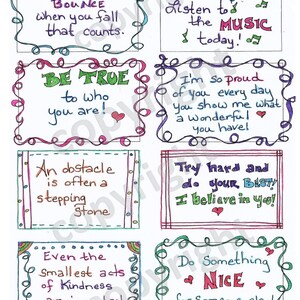 BOUNCE
when you fall
that counts.
Listen to
the MUSIC
today!
BE TRUE
to who
you are!
I'm so proud
of you every day
you show me what
a wonderful
you have!
An obstacle
is often a
stepping
stone
Try hard and
do your BEST!
I believe in you!
Even the
smallest acts
of Kindness
Do Something
NICE
copyright
copyright
copyright